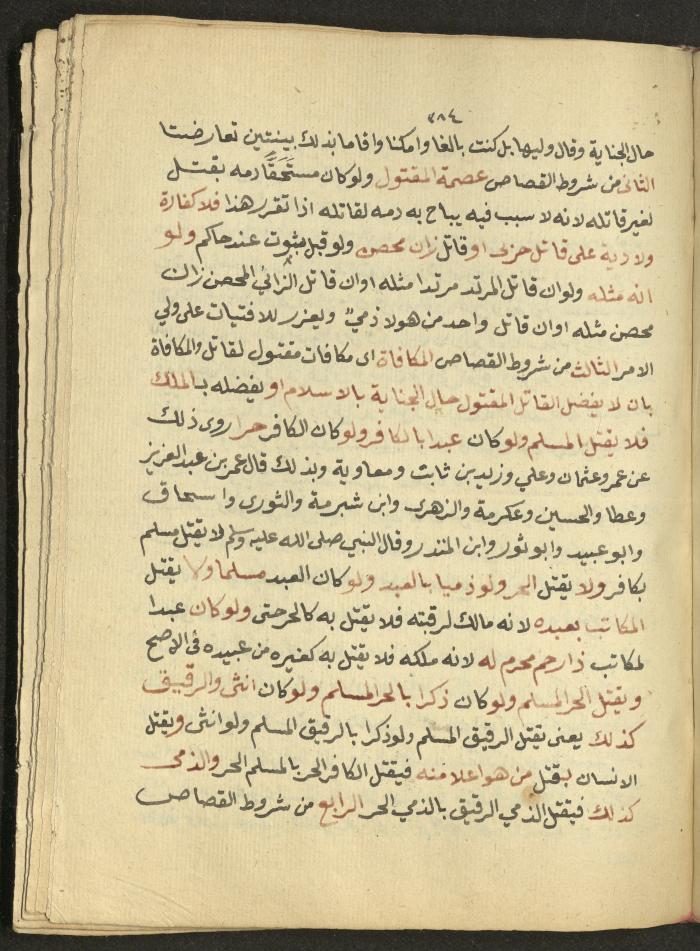 ٣٨٤
حال الجناية وقال وليها بل كنت بالغا وامكنا واقاما بذلك بينتين تعارضتا
الثانى من شروط القصاص عصمة المقتول ولوكان مستَحَقًّا دمه بقتل
لغير قاتله لانه لا سبب فيه يباح به دمه لقاتله اذا تقرر هذا فلا كفارة
ولا دية على قاتل حربى او قاتل زان محصن ولو قبل ثبوت عند حاكم ولو
انه مثله ولو ان قاتل المرتد مرتدا مثله او ان قاتل الزانى المحصن زان
محصن مثله او ان قاتل واحد من هولا ذميٌ ويعزر للافتيات على ولي
الامر الثالث من شروط القصاص المكافاة اى مكافات مقتول لقاتل والمكافاة
بان لا يفضل القاتل المقتول حال الجناية بالاسلام او يفضله بالملك
فلا يقتل المسلم ولو كان عبدا بالكافر ولو كان الكافر حرا روى ذلك
عن عمر وعثمان وعلي وزيد بن ثابت ومعاوية وبذلك قال عمر بن عبد العزيز
وعطا والحسين وعكرمة والزهرى وابن شبرمة والثورى واسحاق
وابو عبيد وابو ثور وابن المنذر وقال النبي صلى الله عليه وسلم لا يقتل مسلم
بكافر ولا يقتل الحر ولو ذميا بالعبد ولو كان العبد مسلما ولا يقتل
المكاتب بعبده لانه مالك لرقبته فلا يقتل به كالحر حتى ولو كان عبدا
لمكاتب ذا رحم محرم له لانه ملكه فلا يقتل به كغيره من عبيده في الاصح
ويقتل الحر المسلم ولو كان ذكرا بالحر المسلم ولو كان انثى والرقيق
كذلك يعنى يقتل الرقيق المسلم ولو ذكرا بالرقيق المسلم ولو انثى ويقتل
الانسان بقتل من هو اعلا منه فيقتل الكافر الحر بالمسلم الحر والذمى
كذلك فيقتل الذمي الرقيق بالذمي الحر الرابع من شروط القصاص